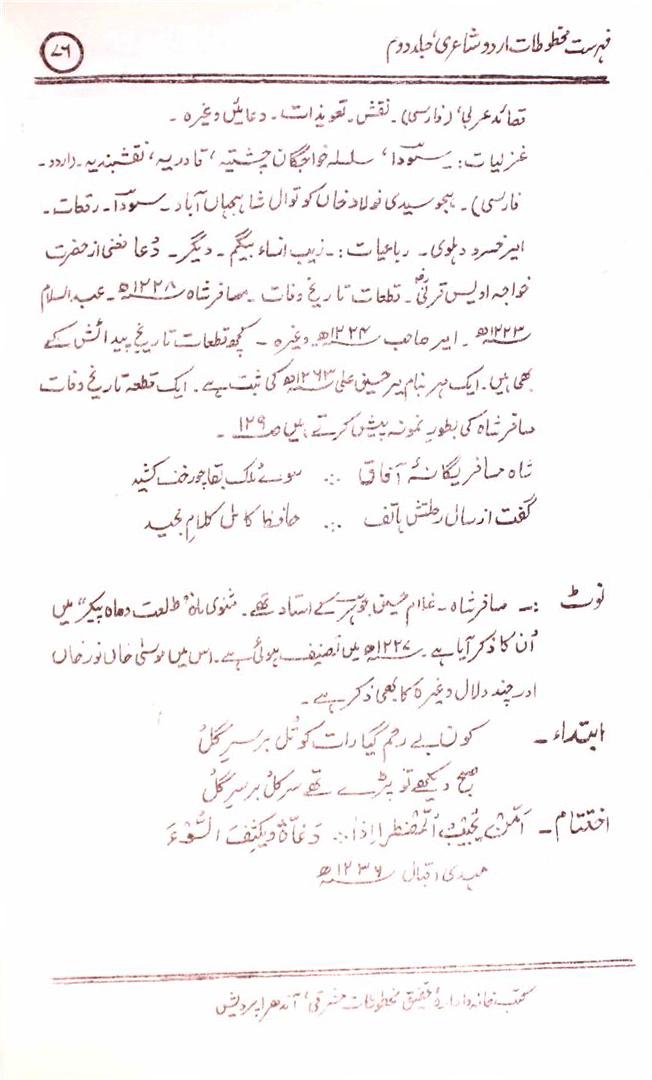 فہرست مخطوطات اردو شاعری، جلد دوم
۷۶
قصائد عربی، (فارسی)۔ نقش۔ تعویذات۔ دعائیں وغیرہ۔
غزلیات:۔ سوداؔ، سلسلہ خواجگان چشتیہ، قادریہ، نقشبندیہ۔ (اردو۔
فارسی)۔ ہجو سیدی فولاد خاں کوتوال شاہجہاں آباد۔ سوداؔ۔ رقعات۔
امیر خسرو دہلوی۔ رباعیات:۔ زیب النساء بیگم۔ دیگر۔ دُعا مغنی از حضرت
خواجہ اویس قرنیؓ۔ قطعات تاریخ وفات۔ مسافر شاہ ۱۲۲۸ھ۔ عبدالسلام
۱۲۲۳ھ۔ امیر صاحب ۱۲۲۴ھ وغیرہ۔ کچھ قطعات تاریخ پیدائش کے
بھی ہیں۔ ایک مہر بنام میر حسینی علی ۱۲۶۳ھ کی ثبت ہے۔ ایک قطعہ تاریخ وفات
مسافر شاہ کی بطور نمونہ پیش کرتے ہیں ص ۱۲۹۔
شاہ مسافر یگانۂ آفاق ؞ سوئے ملک بقا چو رخت کشید
گفت از سال رحلتش ہاتف ؞ حافظ کامل کلام مجید
نوٹ :۔ مسافر شاہ۔ غلام حسین جوہرؔ کے استاد تھے۔ مثنوی "طلعت و ماہ پیکر" میں
اُن کا ذکر آیا ہے۔ ۱۲۲۷ھ میں تصنیف ہوئی ہے۔ اس میں موسیٰ خاں نور خاں
اور چندو لال وغیرہ کا بھی ذکر ہے۔
ابتداء۔ کون بے رحم گیا رات کو تُل بر سرِ گلُ
صبح دیکھے تو پڑے تھے سر گل بر سرِ گلُ
اختتام۔ اَمَّنْ یُّجِیْبُ الْمُضْطَرَّ اِذَا ؞ دَعَاہُ وَیَکْشِفُ السُّوْءَ
مہدی اقبال ۱۲۳۶ھ
کتب خانہ و ادارۂ تحقیق مخطوطات مشرقی، آندھرا پردیش